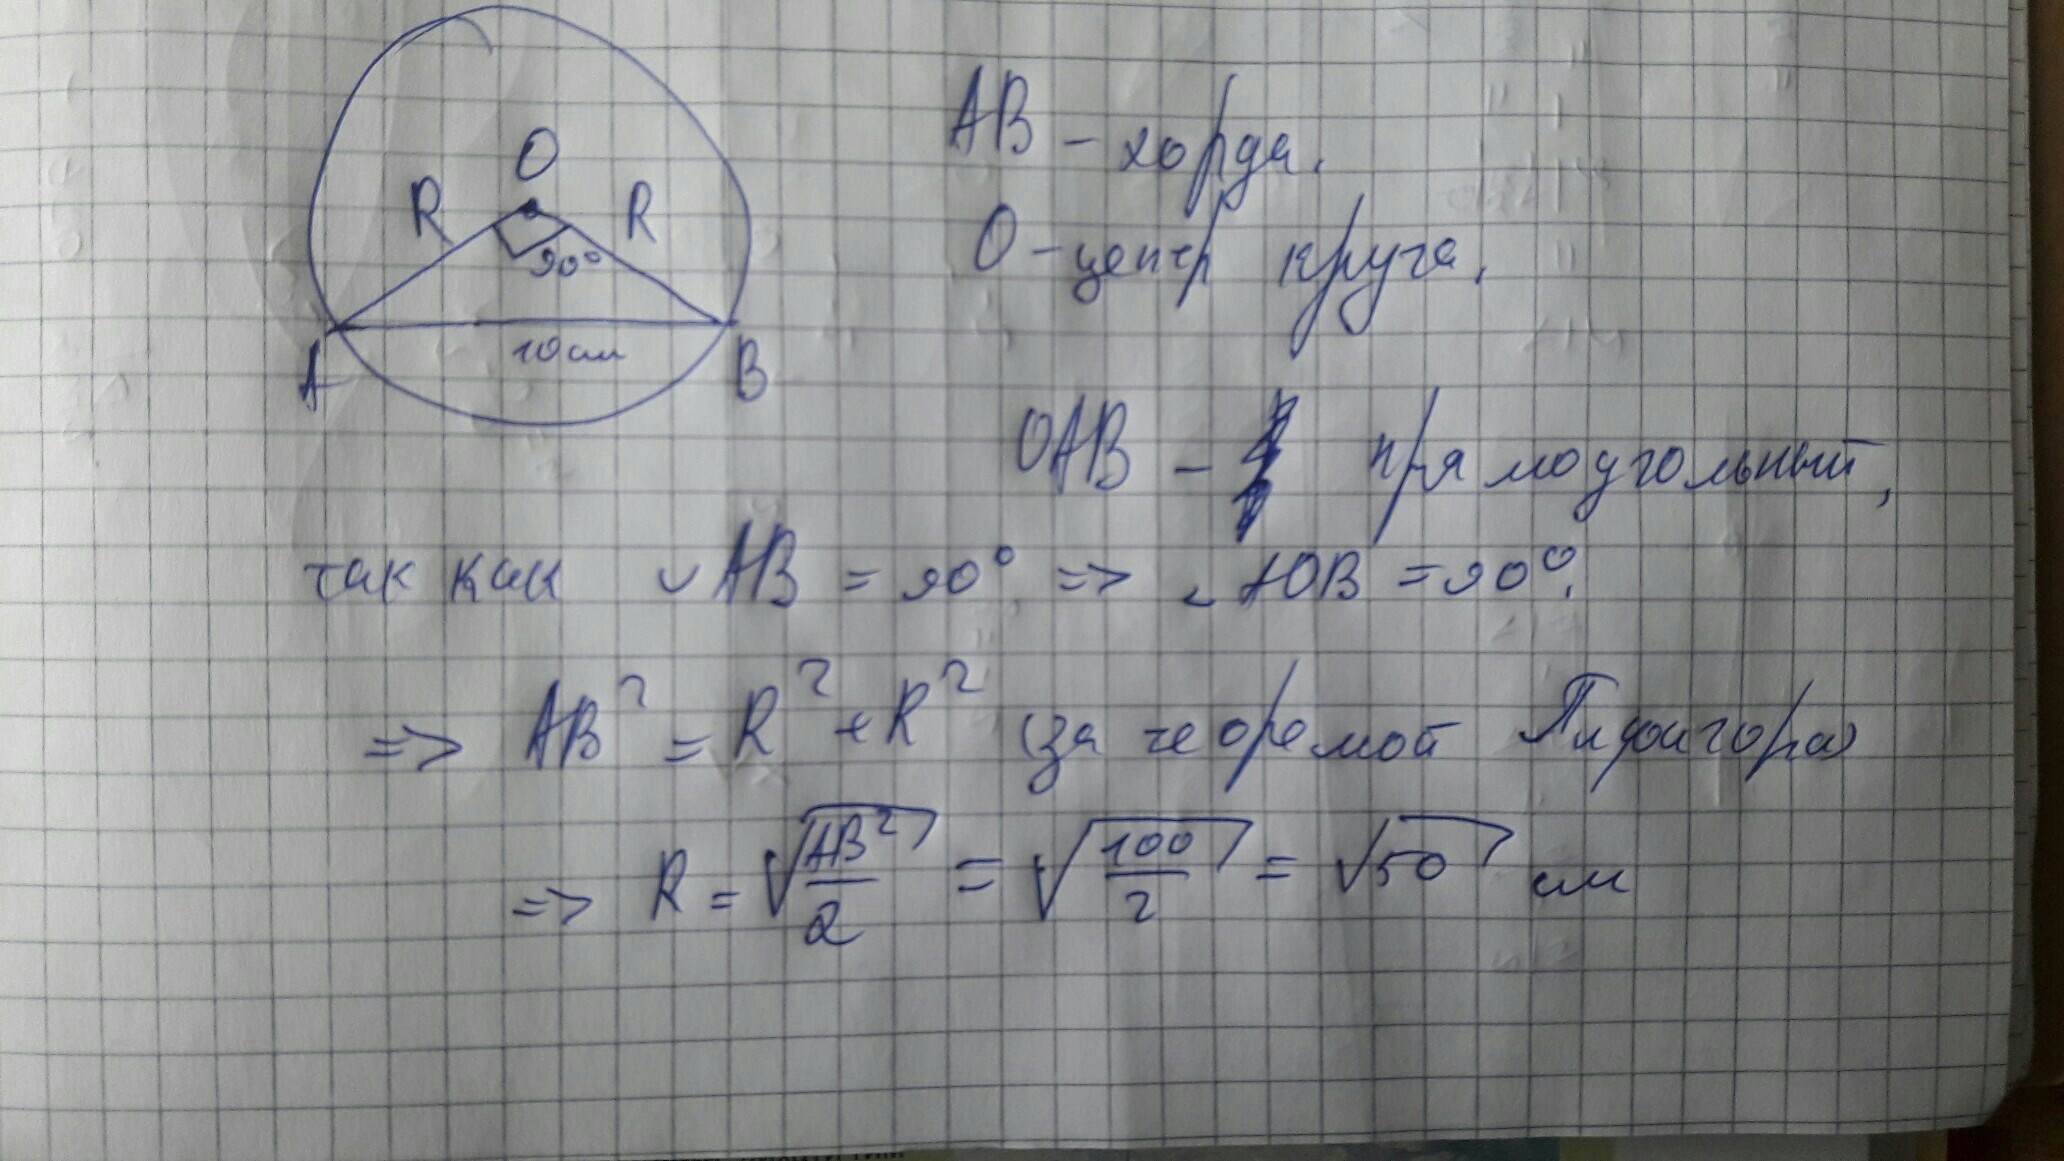 O
R R
90°
10 см
A B
AB - хорда.
O - центр круга.
OAB - прямоугольный,
так как ◡AB = 90° => ∠AOB = 90°.
=> AB² = R² + R² (за теоремой Пифагора)
=> R = √(AB²/2) = √(100/2) = √50 см